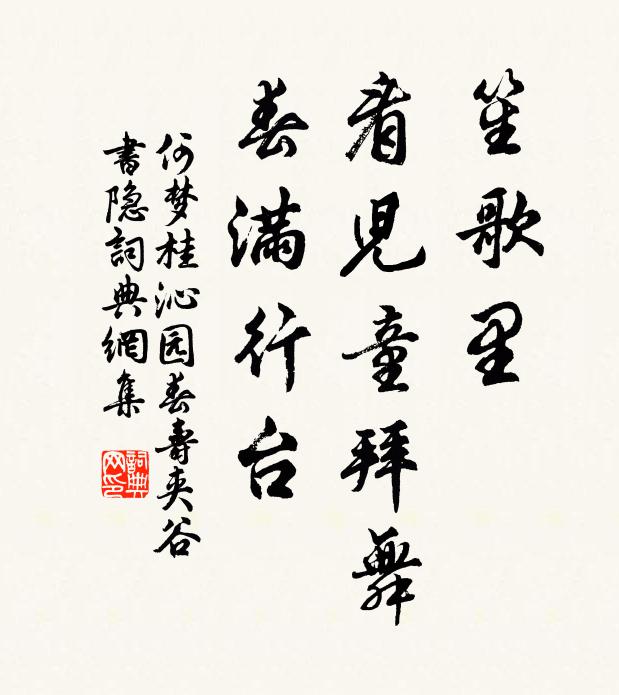 笙歌里
看兒童拜舞
春滿行台
何梦桂沁园春壽夹谷
書隐詞典網集
詞典网印